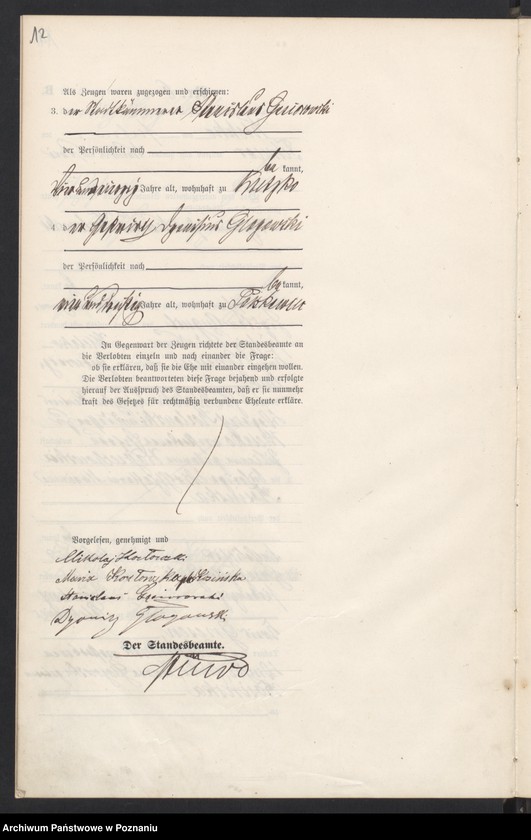 12
Als Zeugen waren zugezogen und erschienen:
3. der Stadtkämmerer Stanislaus
der Persönlichkeit nach
be kannt,
Jahre alt, wohnhaft zu Kletzko
4. der Gastwirth Dyonisius Glogowski
der Persönlichkeit nach
be kannt,
Jahre alt, wohnhaft zu
In Gegenwart der Zeugen richtete der Standesbeamte an
die Verlobten einzeln und nach einander die Frage:
ob sie erklären, daß sie die Ehe mit einander eingehen wollen.
Die Verlobten beantworteten diese Frage bejahend und erfolgte
hierauf der Ausspruch des Standesbeamten, daß er sie nunmehr
kraft des Gesetzes für rechtmäßig verbundene Eheleute erkläre.
Vorgelesen, genehmigt und
Mikołaj
Maria
Stanislaus
Dyonizy Glogowski
Der Standesbeamte.
Archiwum Państwowe w Poznaniu